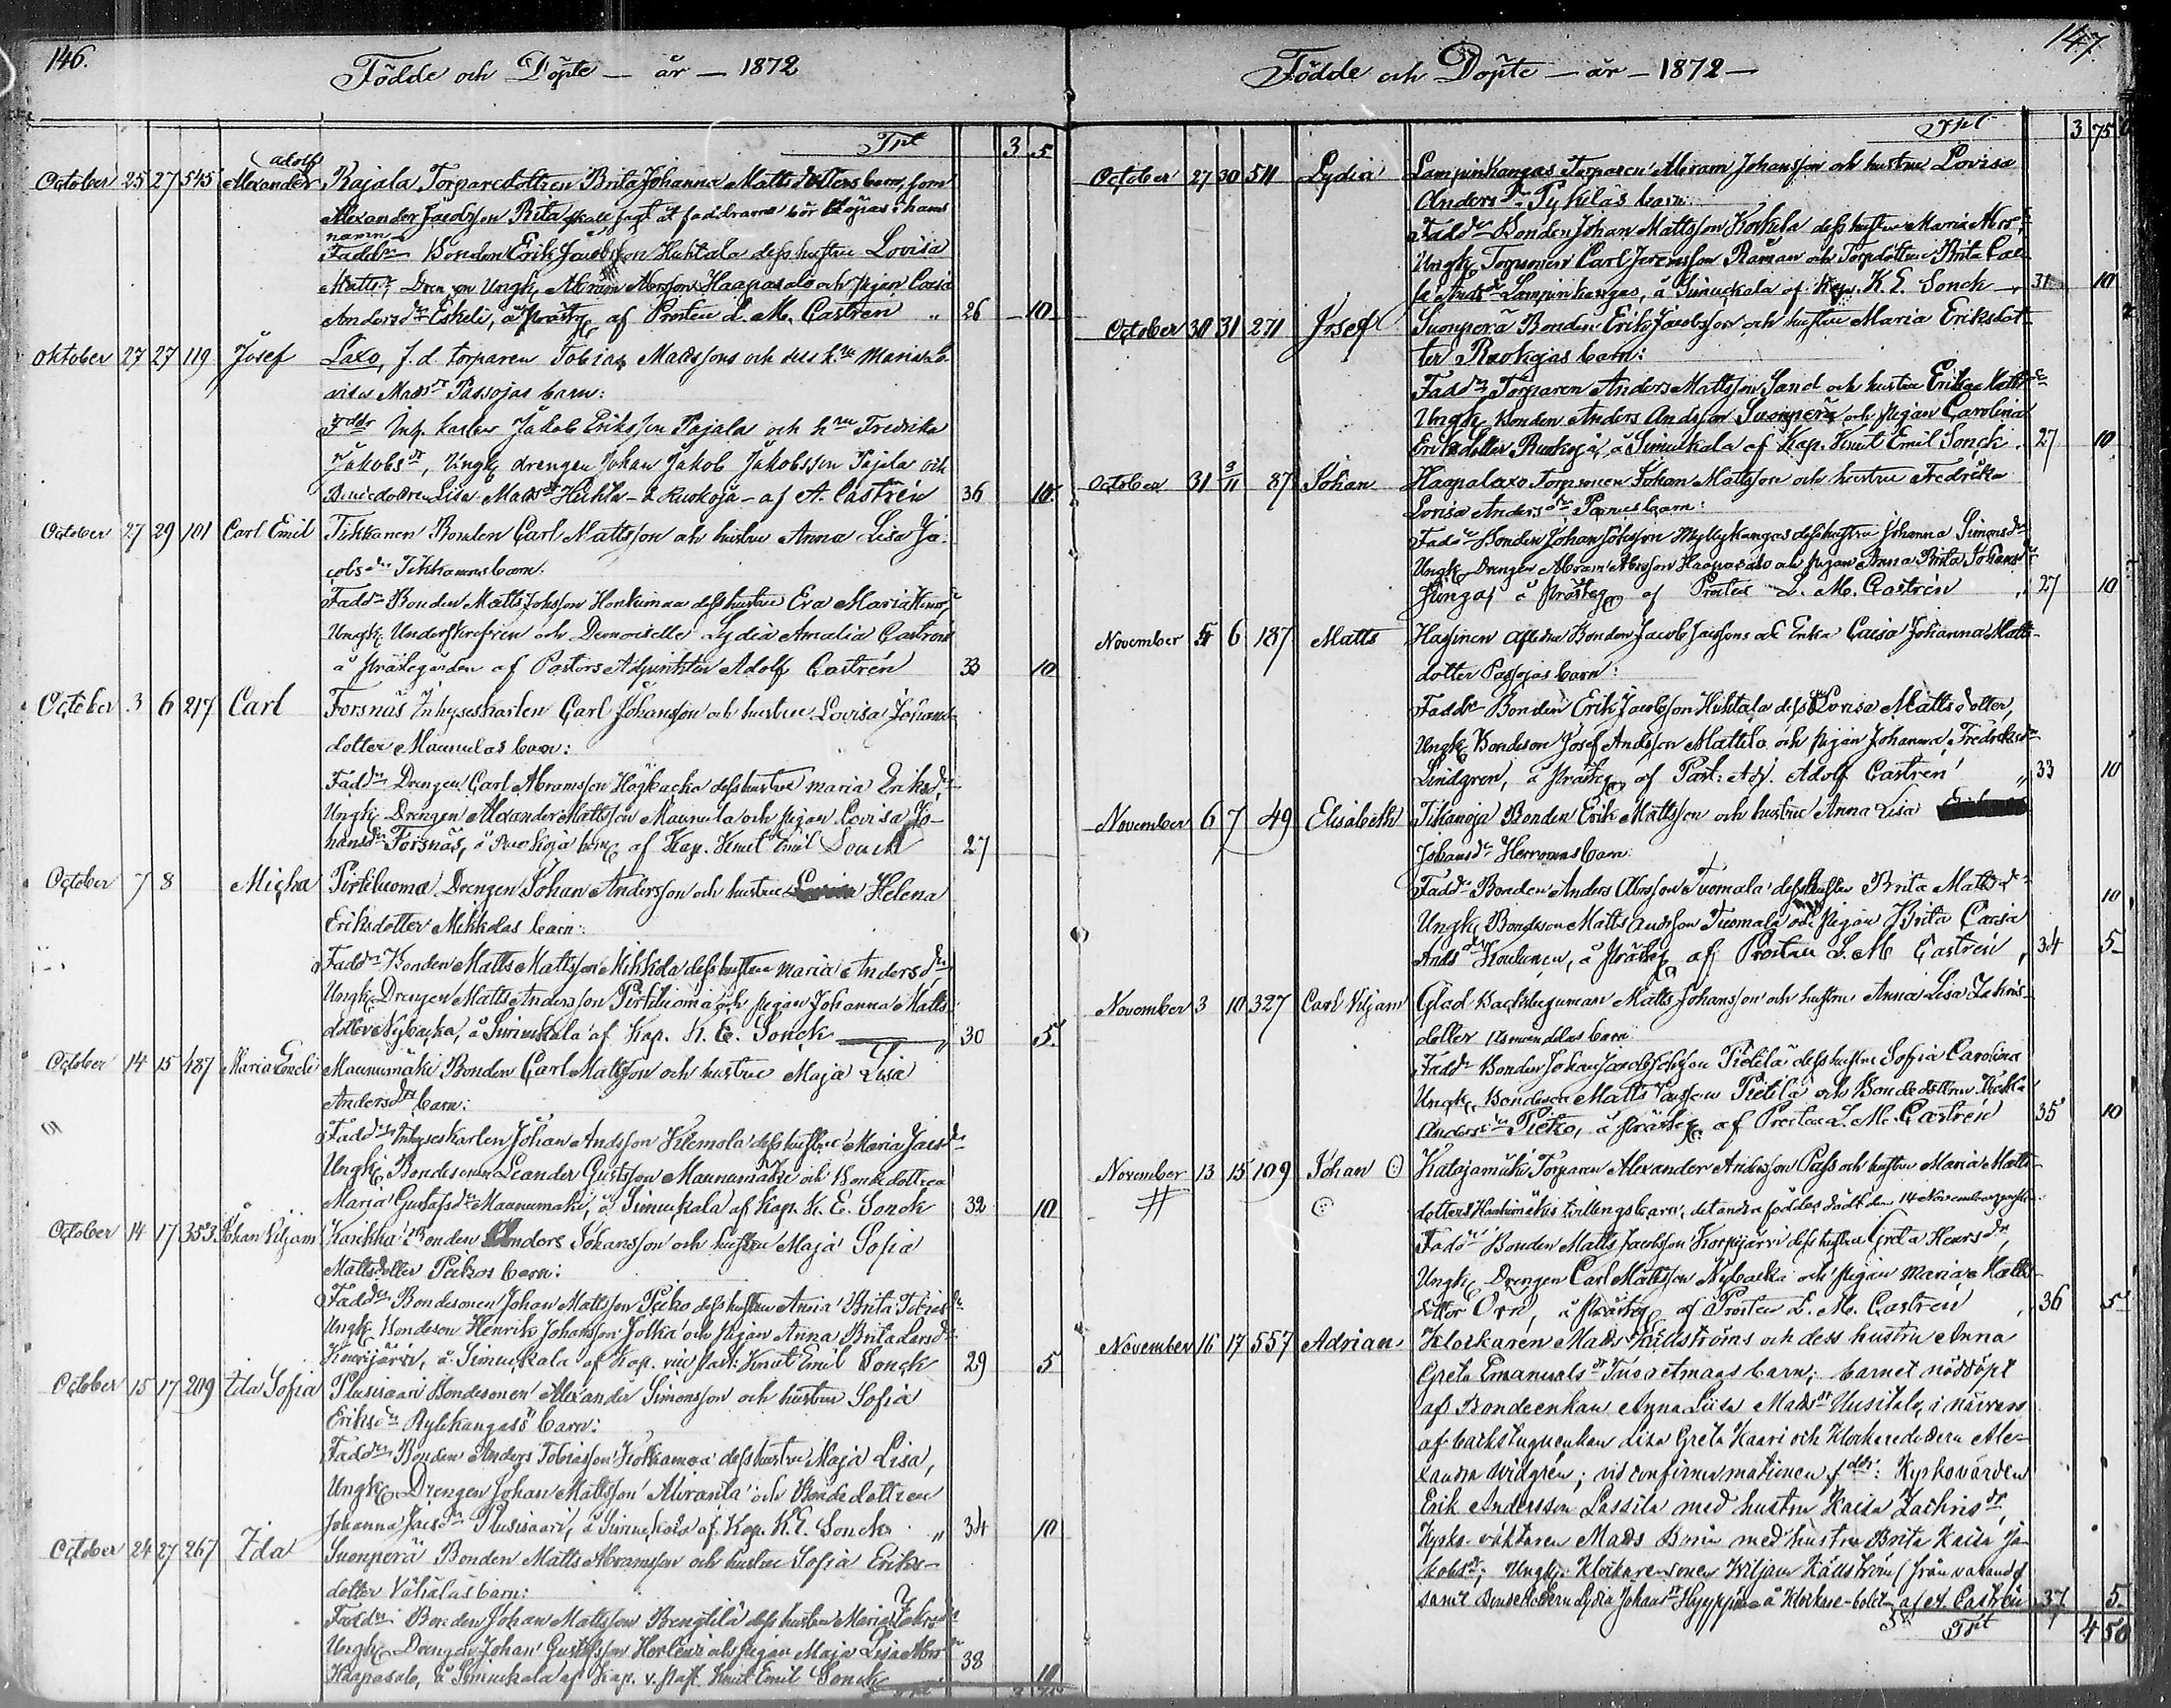 146.
Födde och Döpte — år — 1872
Tpt 3 5
October 25 27 545 Alexander Adolf Rajala, Torparedottren Brita Johanna Matts dotters barn, som
Alexander Jacobsson Rita skall sagt åt faddrarne bör döpas i hans
namn
Faddr Bonden Erik Jacobsson Huhtala dess hustru Lovisa
Mattsdr, Ungk Abram Abrsson Haapasalo och pigan Caisa
Andersdr Eskeli, å Prästg af Prosten L. M. Castrén " 26 10
Oktober 27 27 119 Josef Laxo, f.d. torparen Tobias Mattssons och dess h:ru Maria Lo
visa Matsdr Passojas barn:
Fddr Inh. karlen Jakob Eriksson Pajala och h:ru Fredrika
Jakobsdr, Ungk drengen Johan Jakob Jakobsson Pajala och
Bondedottren Lisa Matsdr Huhta - å Ruokoja - af A. Castrén 36 10
October 27 29 101 Carl Emil Tikkanen Bonden Carl Mattsson och hustru Anna Lisa Ja-
cobsdr Tikkanens barn.
Faddr Bonden Matts Johsson Honkimaa dess hustru Eva Maria
Ungk. Underskrefven och Demoiselle Lydia Amalia Castrén
å prästegården af Pastors Adjunkten Adolf Castrén 33 10
October 3 6 217 Carl Forsnäs Inhyseskarlen Carl Johansson och hustru Lovisa Johans
dotter Maunulas barn:
Faddr Drengen Carl Abramsson Högbacka dess hustru Maria Eriksdr
Ungk Drengen Alexander Mattsson Maunula och pigan Lovisa Jo-
hansdr Forsnäs, å Ruokoja hem af Kap. Knut Emil Sonck 27
October 7 8 Micha Pirttiluoma Drengen Johan Andersson och hustru Helena
Eriksdotter Mikkolas barn:
Faddr Bonden Matts Mattsson Mikkola dess hustru Maria Andersdr
Ungk Drengen Matts Andersson Pirttiluoma och pigan Johanna Matts
dotter Nybacka, å Simuckala af Kap. K. E. Sonck 30 5
October 14 15 487 Maria Maunumäki Bonden Carl Mattsson och hustru Maja Lisa
Andersdr barn:
Faddr Inhyseskarlen Johan Andsson Klemola dess hustru Maria Jacsdr
Ungk Bondesonen Leander Gustsson Maunumäki och Bondedottren
Maria Gustafsdr Maunumäki, å Simuckala af Kap. K. E. Sonck 32 10
October 14 17 353 Johan Viljam Karhka Bonden Anders Johansson och hustru Maja Sofia
Mattsdotter Peikos barn:
Faddr Bondesonen Johan Mattsson Peiko dess hustru Anna Brita Tobiasdr
Ungk Bondeson Henrik Johansson Jolkka och pigan Anna Brita Larsdr
å Simuckala af Kap. vic past: Knut Emil Sonck 29 5
October 15 17 209 Ida Sofia Plusisaari Bondesonen Alexander Simonsson och hustru Sofia
Eriksdr Rytikangass barn:
Faddr Bonden Anders Tobiasson dess hustru Maja Lisa,
Ungk Drengen Johan Mattsson Aliranta och Bondedottren
Johanna Jacsdr Plusisaari, å Simuckala af Kap. K.E. Sonck " 34 10
October 24 27 267 Ida Suonperä Bonden Matts Abramsson och hustru Sofia Eriks-
dotter Vähäläs barn:
Faddr Bonden Johan Mattsson Pengtilä dess hustru Maria
Ungk Drengen Johan Gustafsson och pigan Maja Lisa Abrsdr
Haapasalo, å Simuckala af Kap. v. past Knut Emil Sonck 38 10
147.
Födde och Döpte — år — 1872 —
Tpt 3 75
October 27 30 511 Lydia Lampinkangas Torparen Abram Johansson och hustru Lovisa
Andersdr Pykeläs barn:
Faddr Bonden Johan Mattsson Korkula dess hustru Maria
Ungk Torpsonen Carl Jeremsson Råman och Torpdottren Brita Cai
sa Andsdr Lampinkangas, å Simuckala af Kap. K. E. Sonck 31 10
October 30 31 271 Josef Suonperä Bonden Erik Jacobsson och hustru Maria Eriksdot-
ter Ruokojas barn:
Faddr Torparen Anders Mattsson Sand och hustru Erika Mattsdr
Ungk Bonden Anders Andsson Suonperä och pigan Carolina
Eriksdotter Ruokoja, å Simuckala af Kap. Knut Emil Sonck. 27 10
October 31 3/11 87 Johan Haapalaxo Torpsonen Johan Mattsson och hustru Fredrika
Lovisa Andersdr Panus barn:
Faddr Bonden Johan Johsson Myllykangas dess hustru Johanna Simonsdr
Ungk Drengen Abram Abrsson Haapasalo och pigan Anna Brita Johansdr
Junga, å Prästeg af Prosten L. M. Castrén 27 10
November 5 6 187 Matts Hasinen aflidne Bonden Jacob Jacssons och Enka Caisa Johanna Matts-
dotter Passojas barn:
Faddr Bonden Erik Jacobsson Huhtala dess Lovisa Mattsdotter,
Ungk Bondeson Josef Andsson Mattila och pigan Johanna Fredriksdr
Lindgren, å prästeg af Past: Adj. Adolf Castrén " 33 10
November 6 7 49 Elisabeth Tikanoja Bonden Erik Mattsson och hustru Anna Lisa
Johansdr Hermans barn:
Faddr Bonden Anders Abrsson Tuomala dess hustru Brita Mattsdr 10
Ungk Bondeson Matts Andsson Tuomala och pigan Brita Caisa
Andsdr Koutunen, å prästeg af Prosten L. M Castrén 34 5
November 3 10 327 Carl Viljam Glad Backstuguman Matts Johansson och hustru Anna Lisa Zakris-
dotter barn
Faddr Bonden Johan Jacob Johsson Pietilä dess hustru Sofia Carolina
Ungk. Bondeson Matts Pietilä och Bondedottren Thekla
Andersdr Pietko, å prästeg. af Prosten L. M. Castrén 35 10
November 13 15 109 Johan Katajamäki Torparen Alexander Andersson Pass och hustru Maria Matts-
# dotters tvillingsbarn, det andra föddes dödt den 14 November
Faddr Bonden Matts Jacobsson Korpijärvi dess hustru Greta Henrsdr
Ungk Drengen Carl Mattsson Nybacka och pigan Maria Matts-
dotter Orn, å prästeg af Prosten L. M. Castrén, 36 5
November 16 17 557 Adrian Klockaren Mats Källströms och dess hustru Anna
Greta Emanuelsdr barn; barnet nöddöpt
af Bondeenkan Anna Liisa Matsdr Uusitalo, i närvaro
af backstuguenkan Lisa Greta Kaari och Klockaredottern Ale-
xandra Widgrén; vid confirmationen fddr: Kyrkovärden
Erik Andersson Lassila med hustru Kaisa Zachrisdr,
Kyrko väktaren Mats Boriu med hustru Brita Kaisa Ja-
kobsdr; Ungk. Klockaresonen Wiljam Källström (frånvarande)
samt Bondedottern Lydia Johansdr å Klockare-bolet - af A. Castrén 37 5
Tpt 4 50